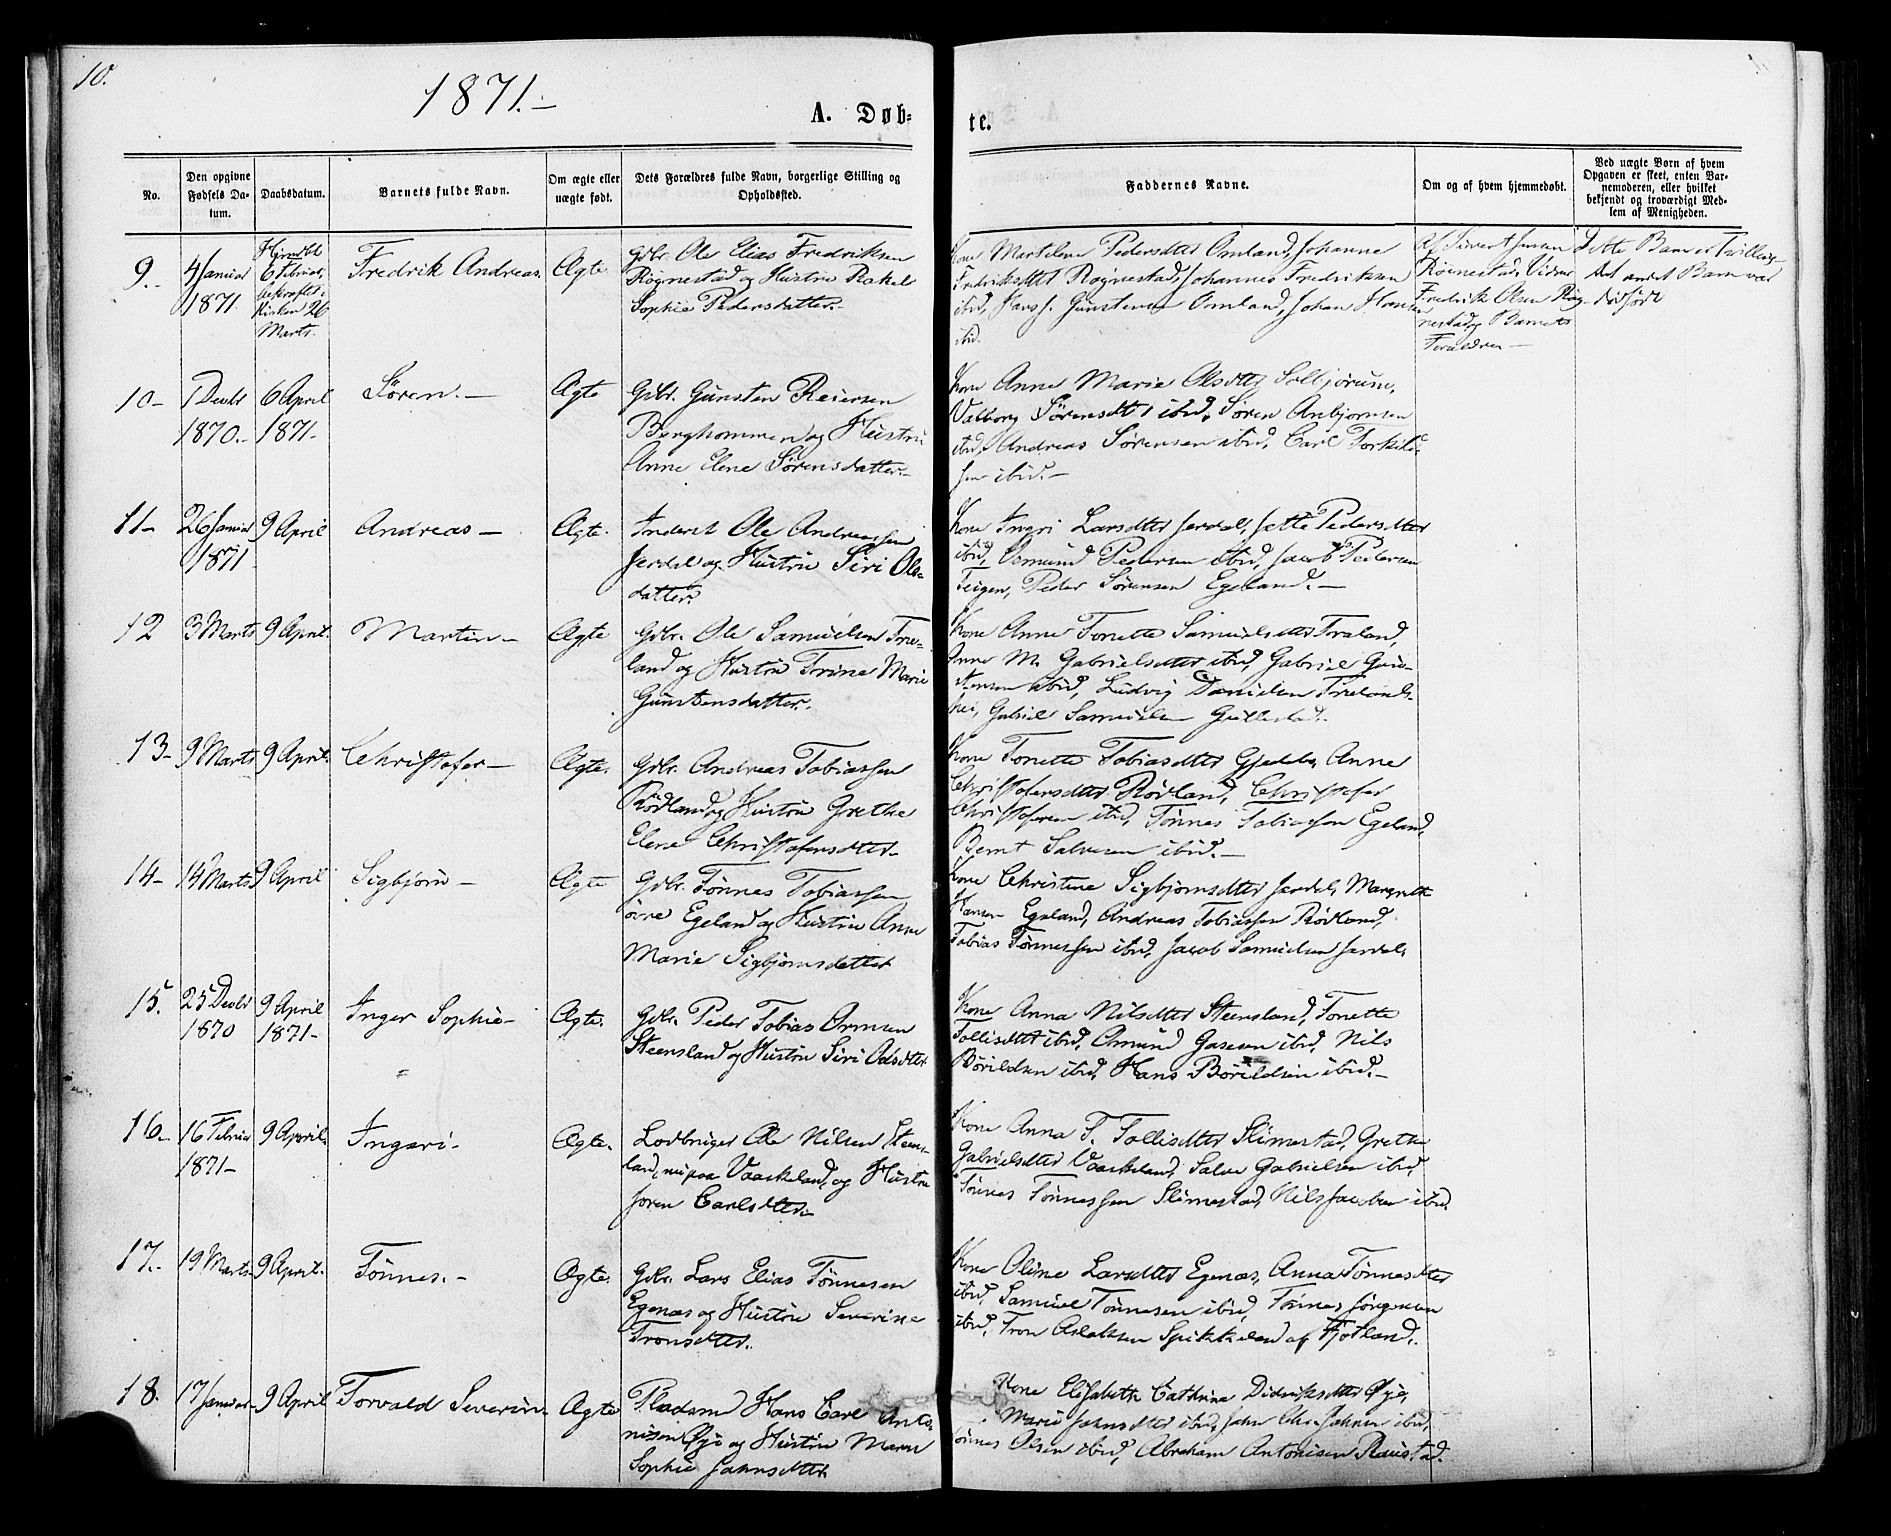 10.
1871.-
A. Døb-
te.
No.
Den opgivne
Fødsels Da-
tum.
Daabsdatum.
Barnets fulde Navn.
Om ægte eller
uægte født.
Dets Forældres fulde Navn, borgerlige Stilling og
Opholdssted.
Faddernes Navne.
Om og af hvem hjemmedøbt.
Ved uægte Børn af hvem
Opgaven er skeet, enten Bar-
nemoderen, eller hvilket
bekjendt og troværdigt Med-
lem af Menigheden.
9.-
4 Januar
1871
6 Februar,
bekræftet i
Kirken 26
Marts.
Fredrik Andreas.
Ægte
Gdbr. Ole Elias Fredriksen
Røgnestad og Hustru Rakel
Sophie Pedersdatter.-
Kone Pedersdtr Omland, Johanne
Fredriksdtr Røgnestad, Johannes Fredriksen
ibid, Hans J. Gunstensen Omland, Johan Hansen
ibid.
Af Sivert Jensen
Røgnestad, Vidner
Fredrik Olsen Røg-
nestad og Barnets
Forældre -
Dette Barn er Tvilling
det andet Barn var
dødfødt
10-
1 Decbr
1870.-
6 April
1871-
Søren.-
Ægte
Gdbr. Gunsten Reiersen
Berghommen og Hustru
Anne Elene Sørensdatter.-
Kone Anne Marie Olsdtr Solbjørum,
Valborg Sørensdtr ibid, Søren Anbjørnsen
ibid, Andreas Sørensen ibid, Carl Torkild-
sen ibid.-
11-
26 Januar
1871
9 April
Andreas-
Ægte.
Inderst Ole Andreassen
Jerdal og Hustru Siri Ols-
datter.
Kone Ingri Larsdtr Jerdal, Jette Pedersdtr
ibid, Osmund Pedersen ibid, Jacob Pedersen
Teigen, Peder Sørensen Egeland.-
12
3 Marts
9 April.
Martin-
Ægte
Gdbr. Ole Samuelsen Træ-
land og Hustru Trine Marie
Gunstensdatter.
Kone Anne Tonette Samuelsdtr Træland,
Anne M. Gabrielsdtr ibid, Gabriel Gun-
stensen ibid, Ludvig Danielsen Trælands-
hei, Gabriel Samuelsen
13-
9 Marts
9 April.
Christofer-
Ægte.
Gdbr. Andreas Tobiassen
Rødland og Hustru Grethe
Elene Christofersdtr-
Kone Tonette Tobiasdtr Gjedde, Anne
Christofersdtr Rødland, Christofer
Christofersen ibid, Tønnes Tobiassen Egeland,
Bernt Salvesen ibid.-
14-
14 Marts
9 April
Sigbjørn-
Ægte
Gdbr. Tønnes Tobiassen
øvre Egeland og Hustru Anne
Marie Sigbjørnsdatter
Kone Christine Sigbjørnsdtr Jerdal, Margrethe
Hansen Egeland, Andreas Tobiassen Rødland,
Tobias Tønnessen ibid, Jacob Samuelsen Jerdal.
15.
25 Decbr
1870
9 April
1871-
Inger Sophie-
Ægte.
Gdbr. Peder Tobias Omsen
Steensland og Hustru Siri Adsdtr
Kone Anna Nilsdtr Steensland, Tonette
Tollisdtr ibid, Omund Gasesen ibid, Nils
Børildsen ibid, Hans Børildsen ibid.-
16.-
16 Februar
1871-
9 April.
Ingeri-
Ægte.
Lodbruger Ole Nilsen Steens-
land, nu paa Vaaskeland, og Hustru
Joren Carlsdtr.-
Kone Anna T. Tollisdtr Slimestad, Grethe
Gabrielsdtr Vaaskeland, Salve Gabrielsen ibid,
Tønnes Tønnessen Slimestad, Nils Jacobsen ibid.
17.-
19 Marts-
9 April.
Tønnes.-
Ægte.
Gdbr. Lars Elias Tønnesen
Egenæs og Hustru Severine
Tronsdtr.
Kone Oline Larsdtr Egenæs, Anna Tønnesdtr
ibid, Samuel Tønnesen ibid, Tønnes Jørgensen
ibid, Tron Aslaksen Spikkeland af Fjotland.
18.
17 Januar-
9 April
Torvald Severin-
Ægte
Pladsm Hans Carl Anto-
nisen Øye og Hustru Maren
Sophie Jahnsdtr
Kone Elisabeth Cathrine Didriksdtr Øye,
Marie Jahnsdtr ibid, Jahn Chr. Jahnsen ibid,
Tønnes Olsen ibid, Abraham Antonisen Raustad.